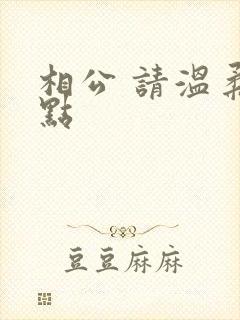 相公 請溫柔
點
豆豆麻麻